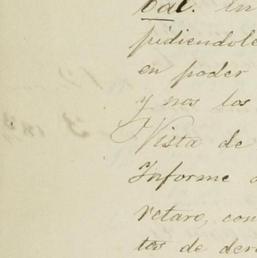 bal. in
pidiendole
en poder
y nos los
Vista de
Informe
retaro, con
tos de der